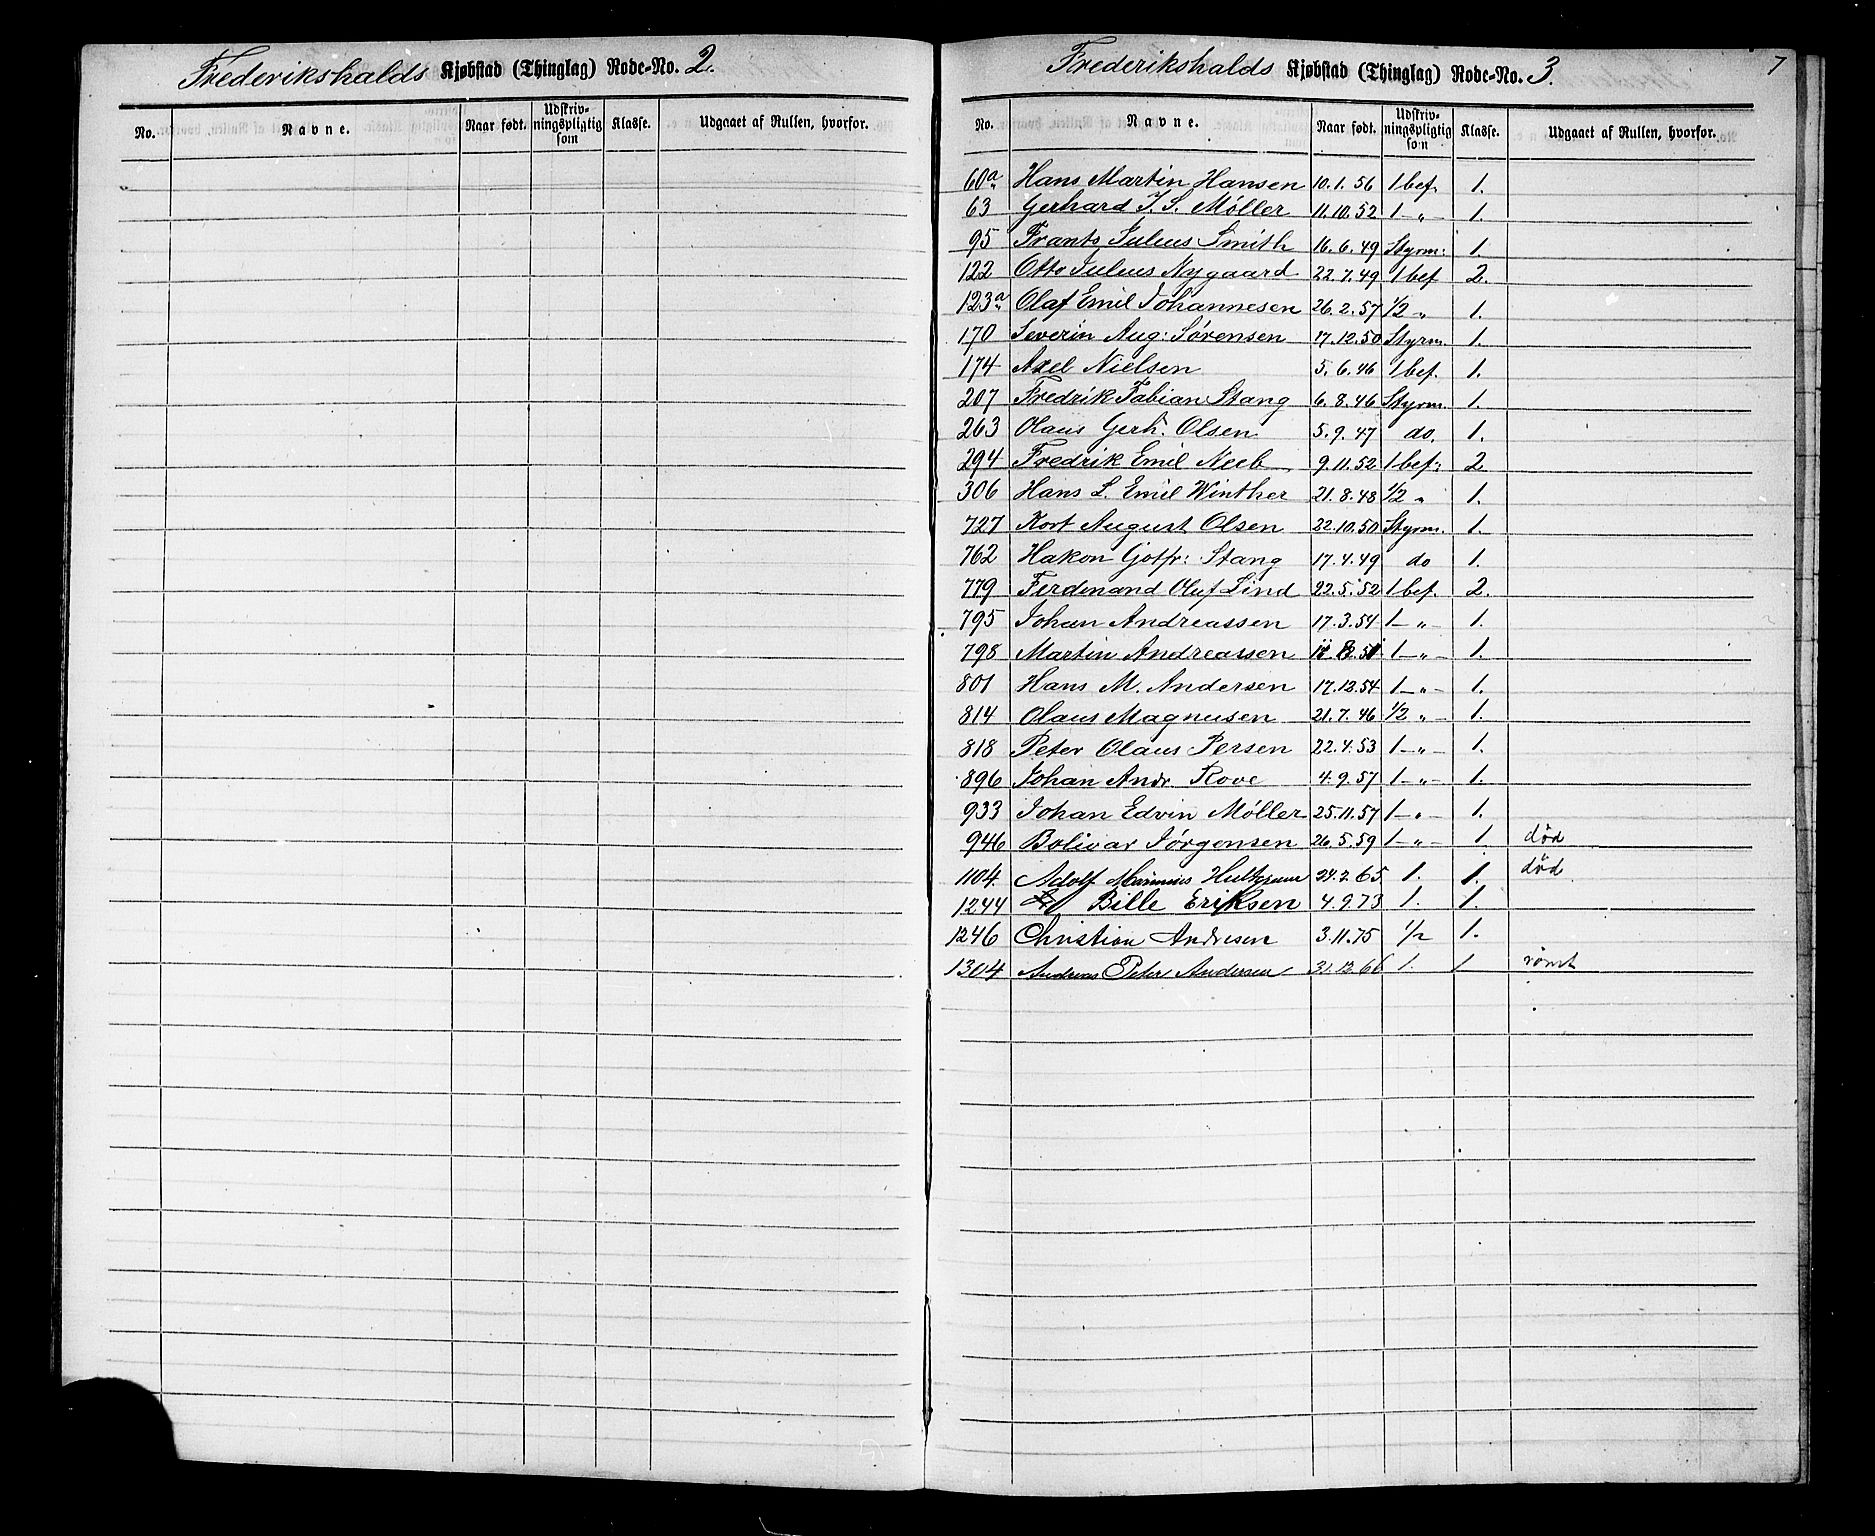 Frederikshalds Kjøbstad (Thinglag) Rode-No. 2.
No. Navne. Naar født. Udskrivningspligtig som Klasse. Udgaaet af Rullen, hvorfor.
Frederikshalds Kjøbstad (Thinglag) Rode-No. 3. 7
No. Navne. Naar født. Udskrivningspligtig som Klasse. Udgaaet af Rullen, hvorfor.
60a Hans Martin Hansen 10.1.56 1 bef. 1.
63 Gerhard J. S. Møller 11.10.52 1 – „ – 1.
95 Frants Julius Smith 16.6.49 Styrm: 1.
122 Otto Julius Nygaard 22.7.49 1 bef 2.
123a Olaf Emil Johannesen 26.2.57 1/2 „ 1.
170 Severin Aug: Sørensen 17.12.50 Styrm. 1.
174 Axel Nielsen 5.6.46 1 bef. 1.
207 Fredrik Fabian Stang 6.8.46 Styrm. 1.
263 Olaus Gerh. Olsen 5.9.47 do. 1.
294 Fredrik Emil Neeb 9.11.52 1 bef: 2
306 Hans L. Emil Winther 21.8.48 1/2 „ 1.
727 Kort August Olsen 22.10.50 Styrm. 1.
762 Hakon Gotfr: Stang 17.4.49 do 1.
779 Ferdinand Oluf Lind 22.5.52 1 bef. 2.
795 Johan Andreassen 17.3.54 1 – „ – 1.
798 Martin Andreassen 1 – „ – 1.
801 Hans M. Andersen 17.12.54 1 – „ – 1.
814 Olaus Magnusen 21.7.46 1/2 „ – 1.
818 Peter Olaus Persen 22.4.53 1 – „ – 1.
896 Johan Andr. Rove 4.9.57 1 – „ – 1.
933 Johan Edvin Møller 25.11.57 1 – „ – 1.
946 Bolivar Jørgensen 26.5.59 1 – „ – 1 död
1104. Adolf Marinius 24.2.65 1. 1. död
1244 Bille Eriksen 4.9.73 1. 1.
1246 Christian Andresen 3.11.75 1/2 1.
1304 Andreas Peter Andersen 31.12.66 1. 1 römt